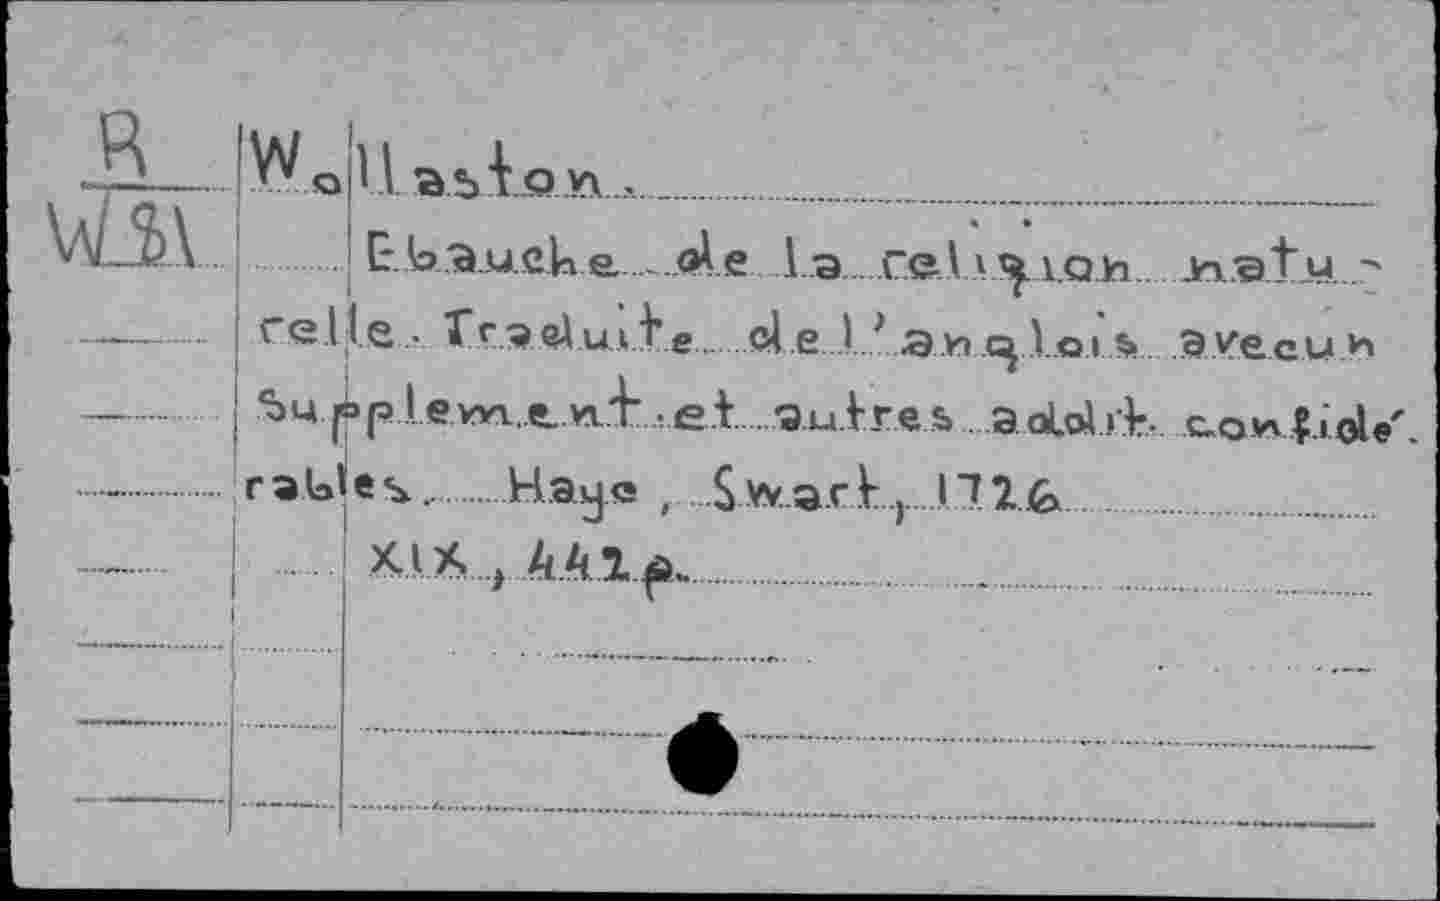 R
W81
Wollaston.
Ebauche de la religion natu-
relle. Traduite de l'anglois avec un
Supplement et autres addit. conside-
rables. Haye, Swart, 1726
XIX, 442 p.